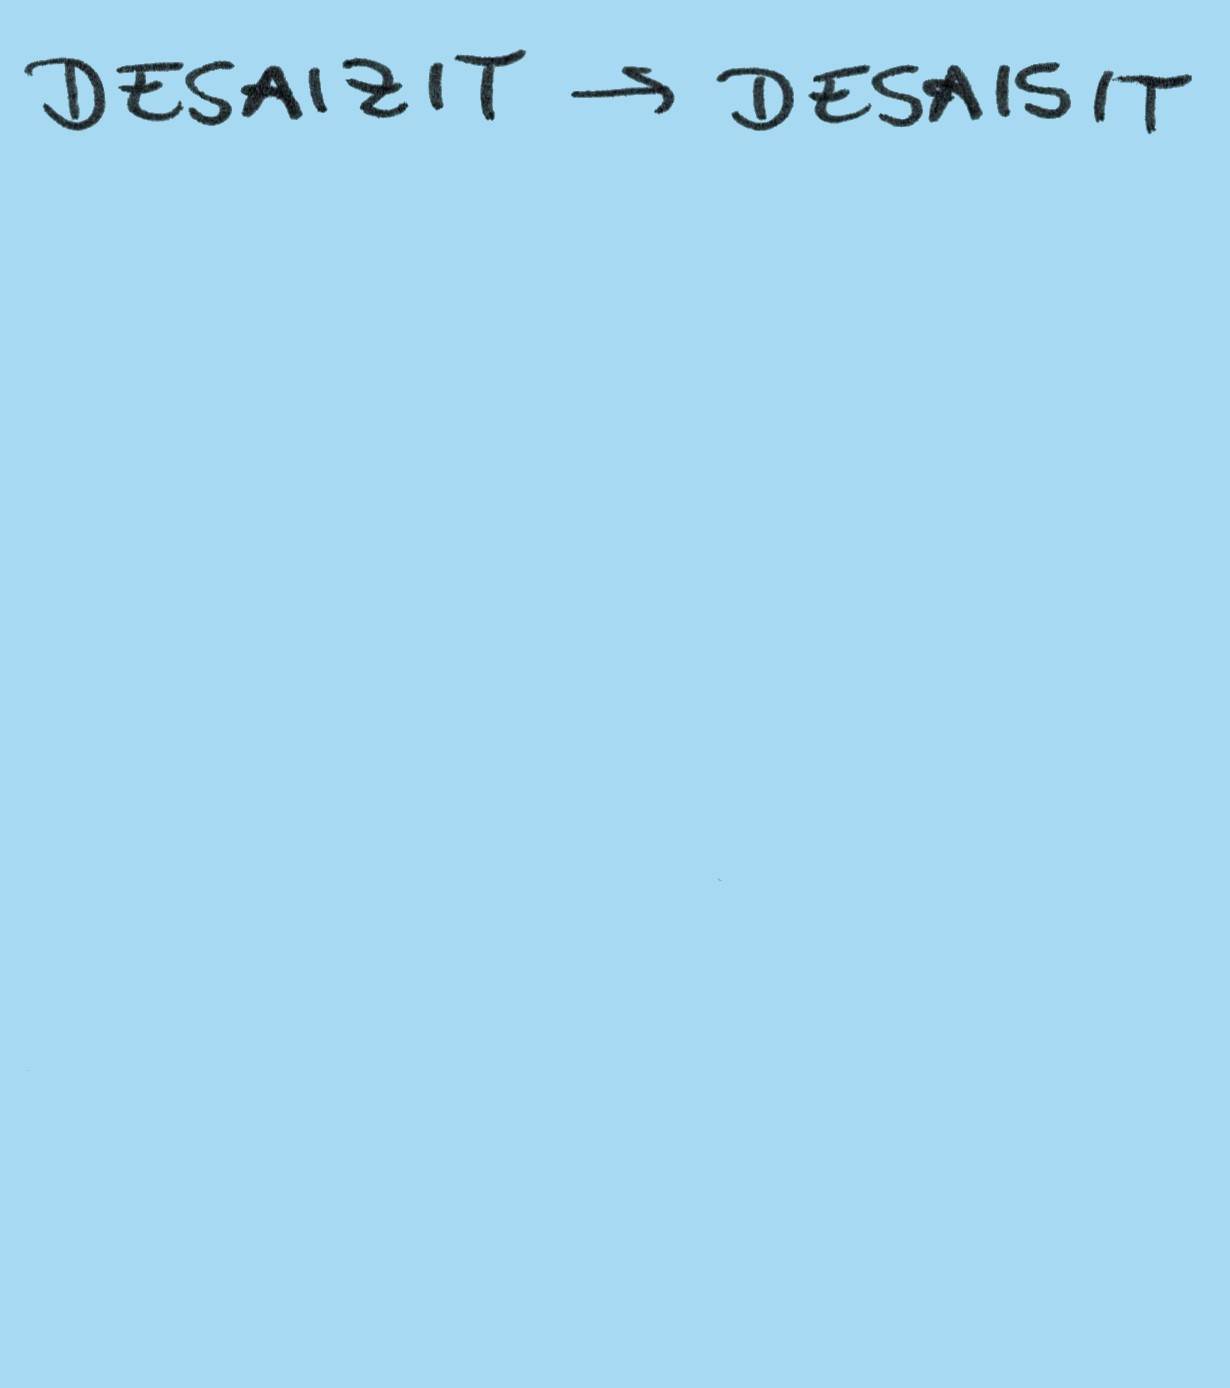 DESAIZIT → DESAISIT